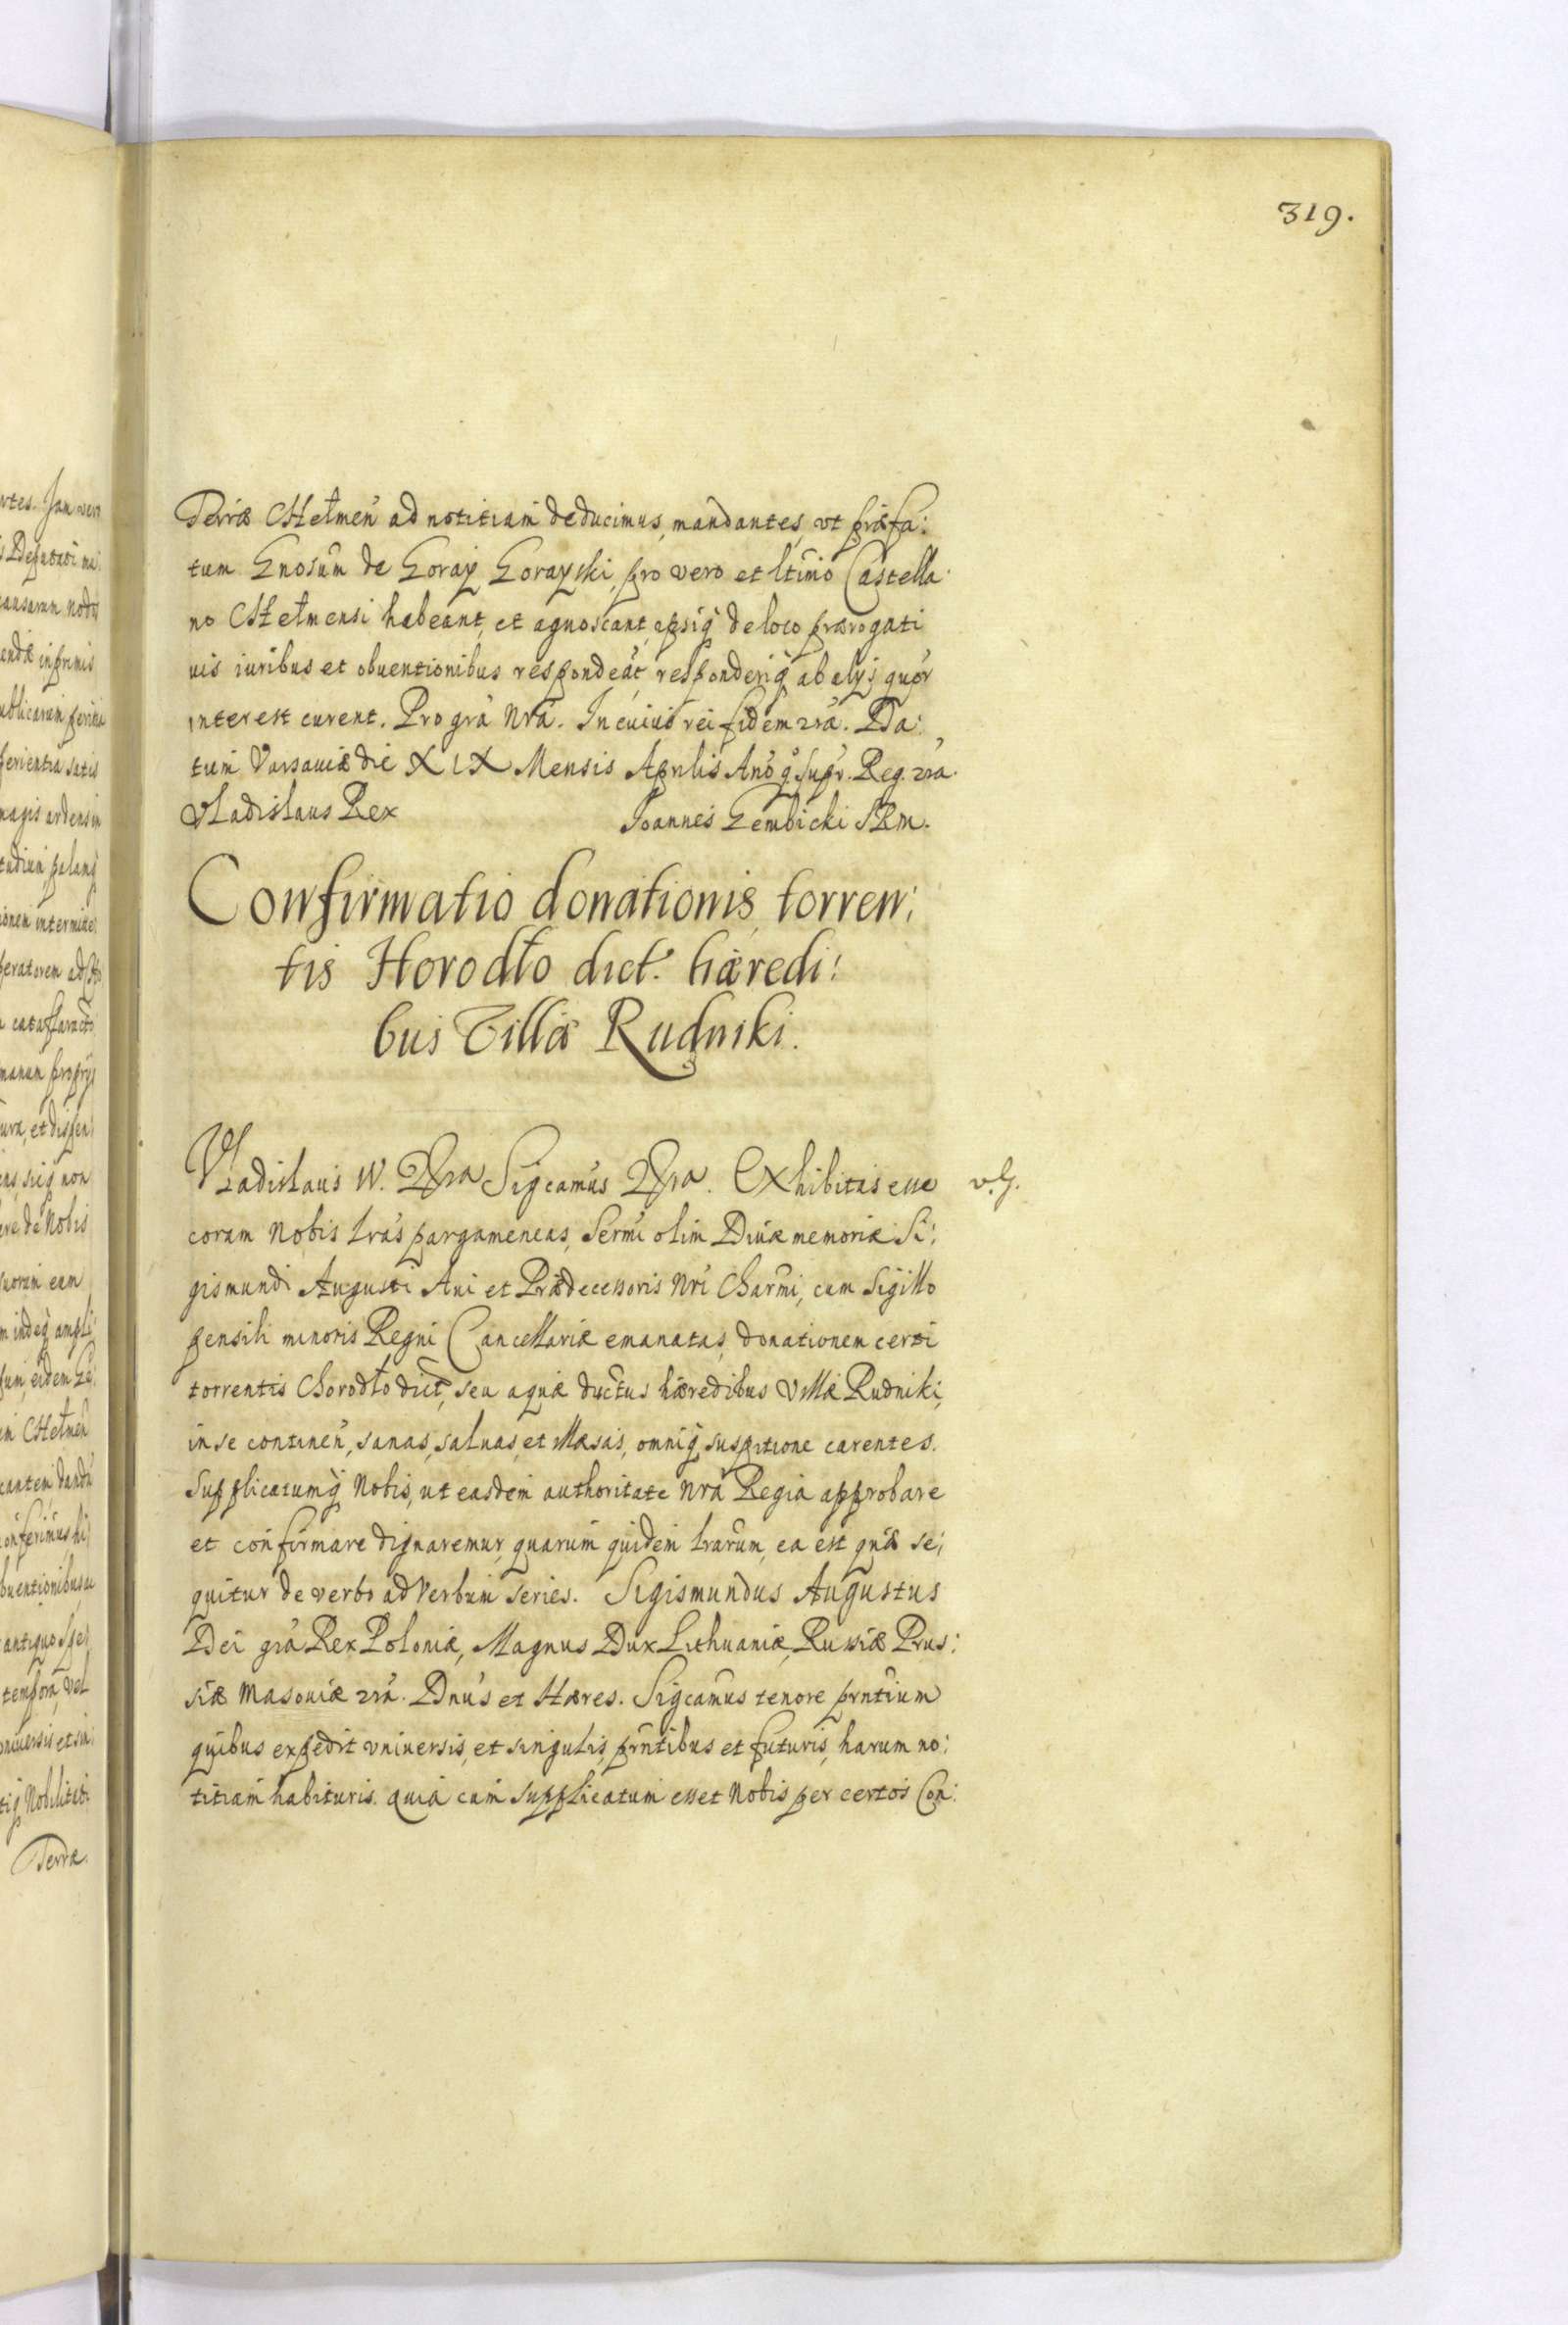 319.
Terræ CHełmen̄ ad notitiam deducimus, mandantes, vt præfa:
tum Gnosum de Goray Gorayski, pro vero et ltimo Castella:
no CHełmensi habeant, et agnoscant, ipsiq̨ de loco prærogati
uis iuribus et obuentionibus respondeāt responderiq̨ ab alijs quor̄
interest curent. Pro grā Nrā. In cuius rei fidem etcā. Da:
tum Varsauiæ die XIX Mensis Aprilis Anō qō supr. Reg. etcā.
Vladislaus Rex Joannes Gembicki SRM.
Confirmatio donationis torren:
tis Horodło dict. hæredi:
bus Villæ Rudniki.
Vladislaus IV. Etcra Sigcamūs Etcra. Exhibitas esse
v. G.
coram Nobis lrās pargameneas, Sermī olim Diuæ memoriæ Si:
gismundi Augusti Aui et Prædecessoris Nrī Charmi, cum Sigillo
pensili minoris Regni Cancellariæ emanatas, donationem certi
torrentis Chorodło dict, seu aquæ ductus hæredibus Villæ Rudniki,
in se continen̄, sanas, saluas, et illæsas, omniq̨ suspitione carentes.
Supplicatumq̨ Nobis, ut easdem authoritate Nrā Regia approbare
et confirmare dignaremur, quarum quidem lrarum, ea est quæ se:
quitur de verbo ad Verbum series. Sigismundus Augustus
Dei grā Rex Poloniæ, Magnus Dux Lithuaniæ, Russiæ Prus:
siæ Masouiæ etcā. Dnūs et Hæres. Sigcamūs tenore prntium
quibus expedit vniuersis, et singulis, prntibus et futuris, harum no:
titiam habituris. Quia cum supplicatum esset Nobis per certos Con: